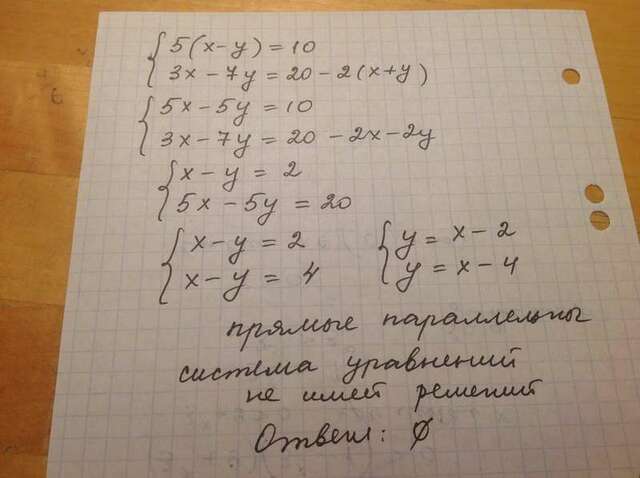 5(x-y)=10
3x-7y=20-2(x+y)
5x-5y=10
3x-7y=20-2x-2y
x-y=2
5x-5y=20
x-y=2 y=x-2
x-y=4 y=x-4
прямые параллельны
система уравнений
не имеет решений
Ответ: ∅